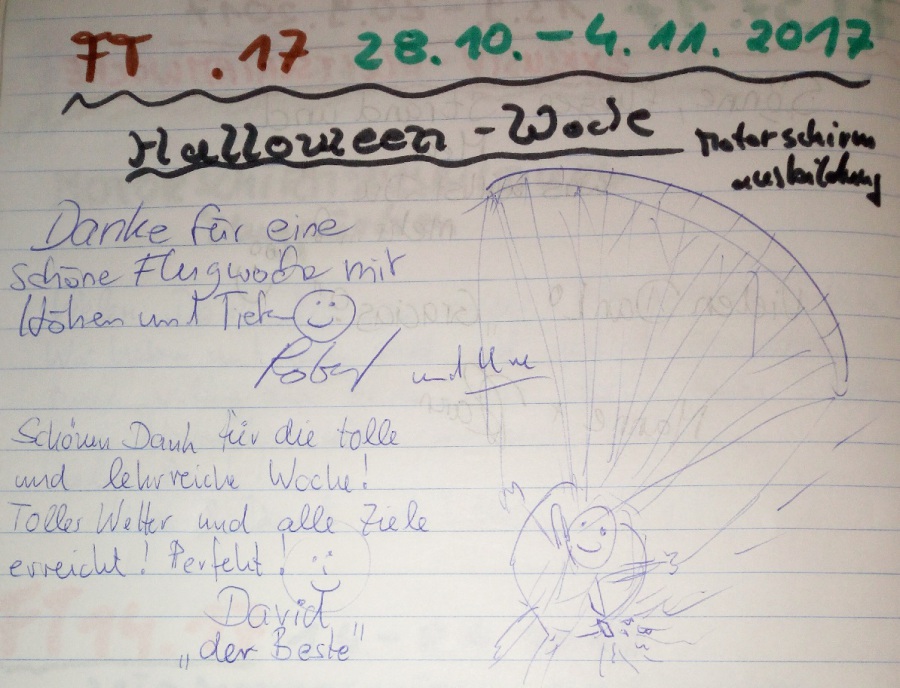 FT .17 28.10.-4.11.2017
Halloween-Woche
Motorschirm
ausbildung
Danke für eine
schöne Flugwoche mit
Höhen und Tiefen
Robert und Ute
Schönen Dank für die tolle
und lehrreiche Woche!
Tolles Wetter und alle Ziele
erreicht! Perfekt!
David
„der Beste"